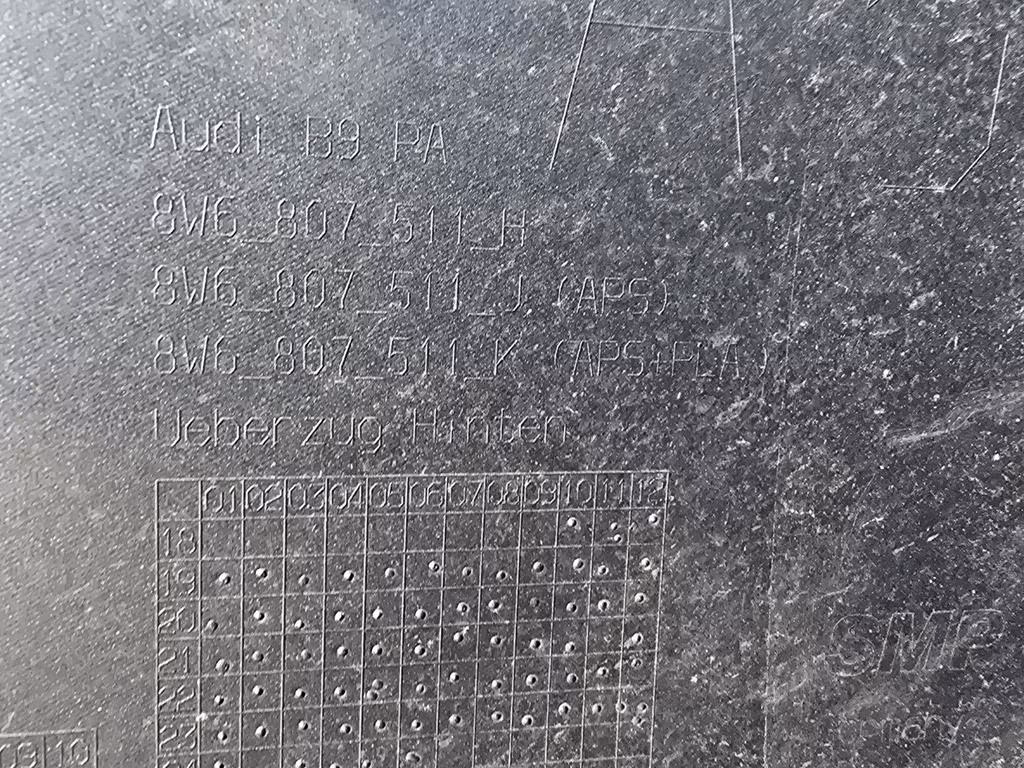 Audi B9 PA
8W6_807_511_H
8W6_807_511_J (APS)
8W6_807_511_K (APS+PLA)
Ueberzug Hinten
01 02 03 04 05 06 07 08 09 10 11 12
18
19
20
21
22
23
24
09 10
SMP